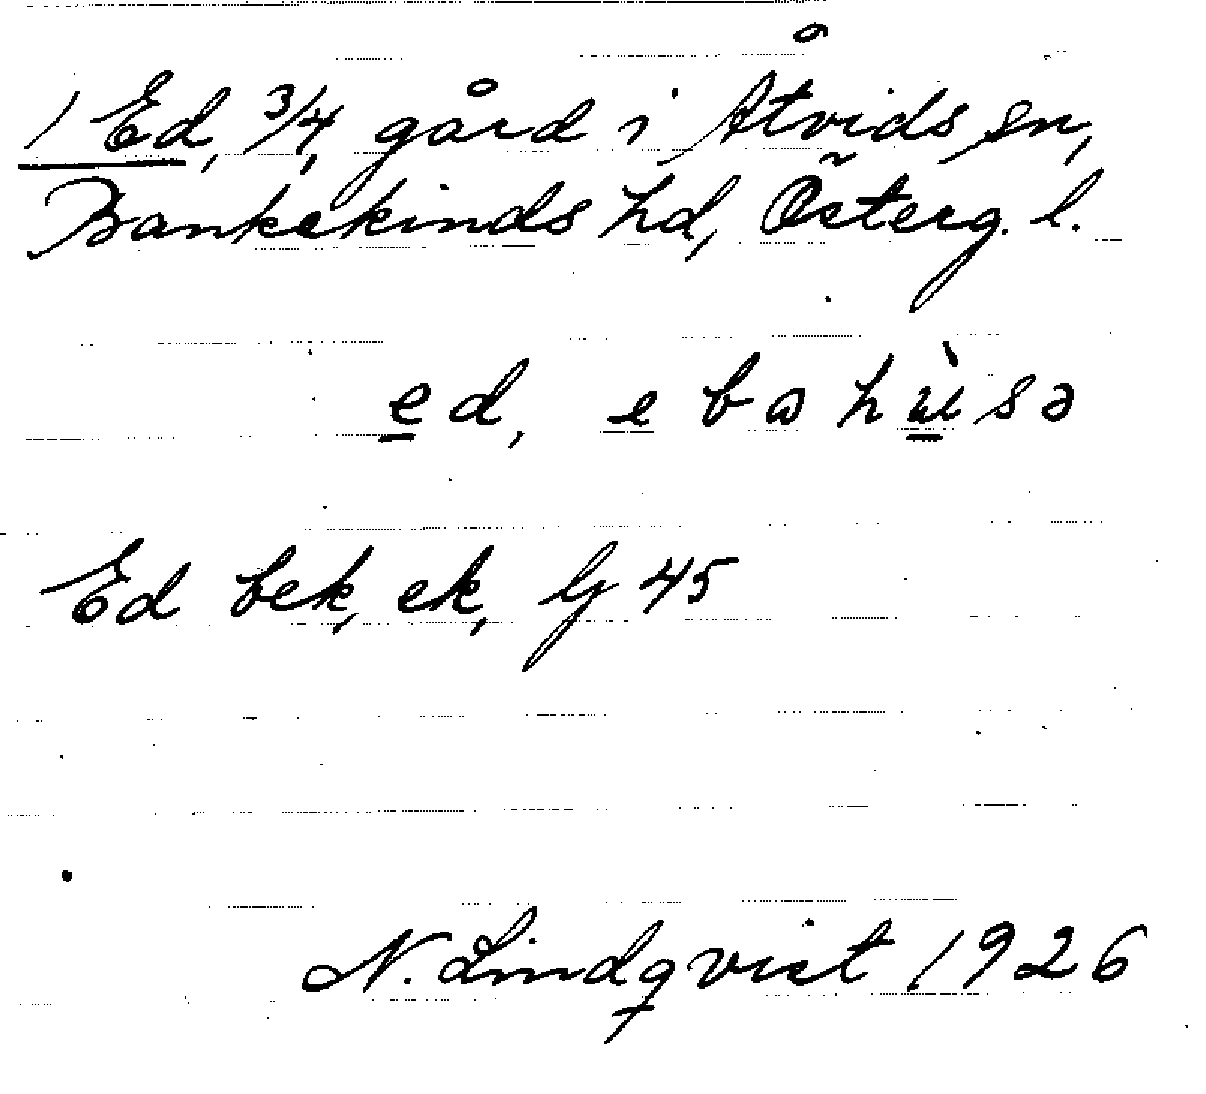 1 Ed, 3/4, gård i Åtvids sn,
Bankekinds hd, Österg. l.
ed, e bα hùsə
Ed bek, ek, lj 45
N. Lindqvist 1926